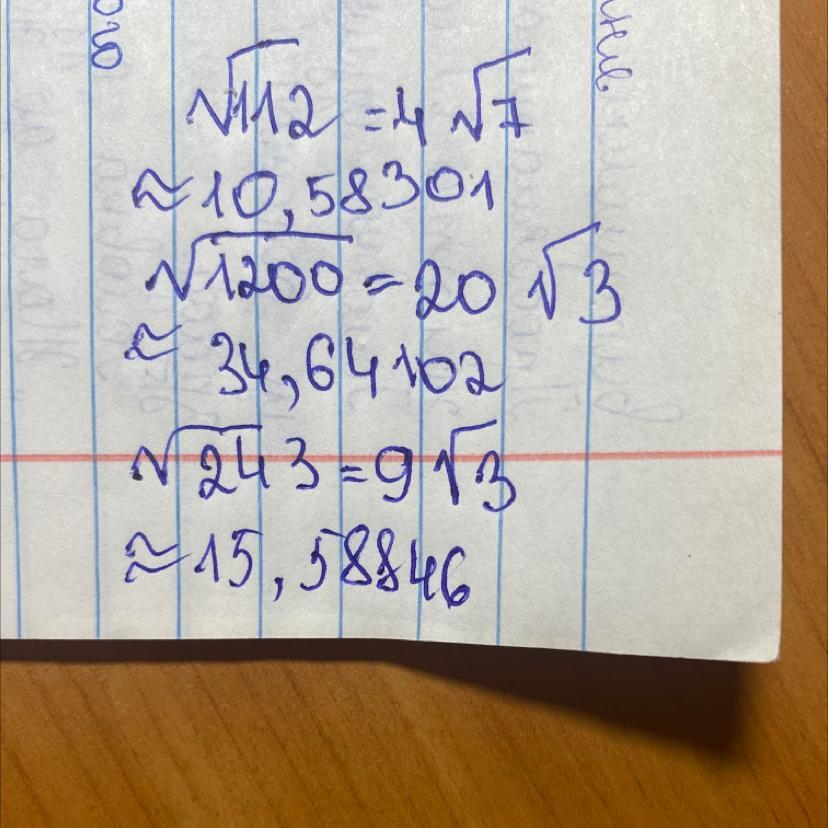 √112 = 4 √7
≈ 10,58301
√1200 = 20 √3
≈ 34,64102
√243 = 9 √3
≈ 15,58846